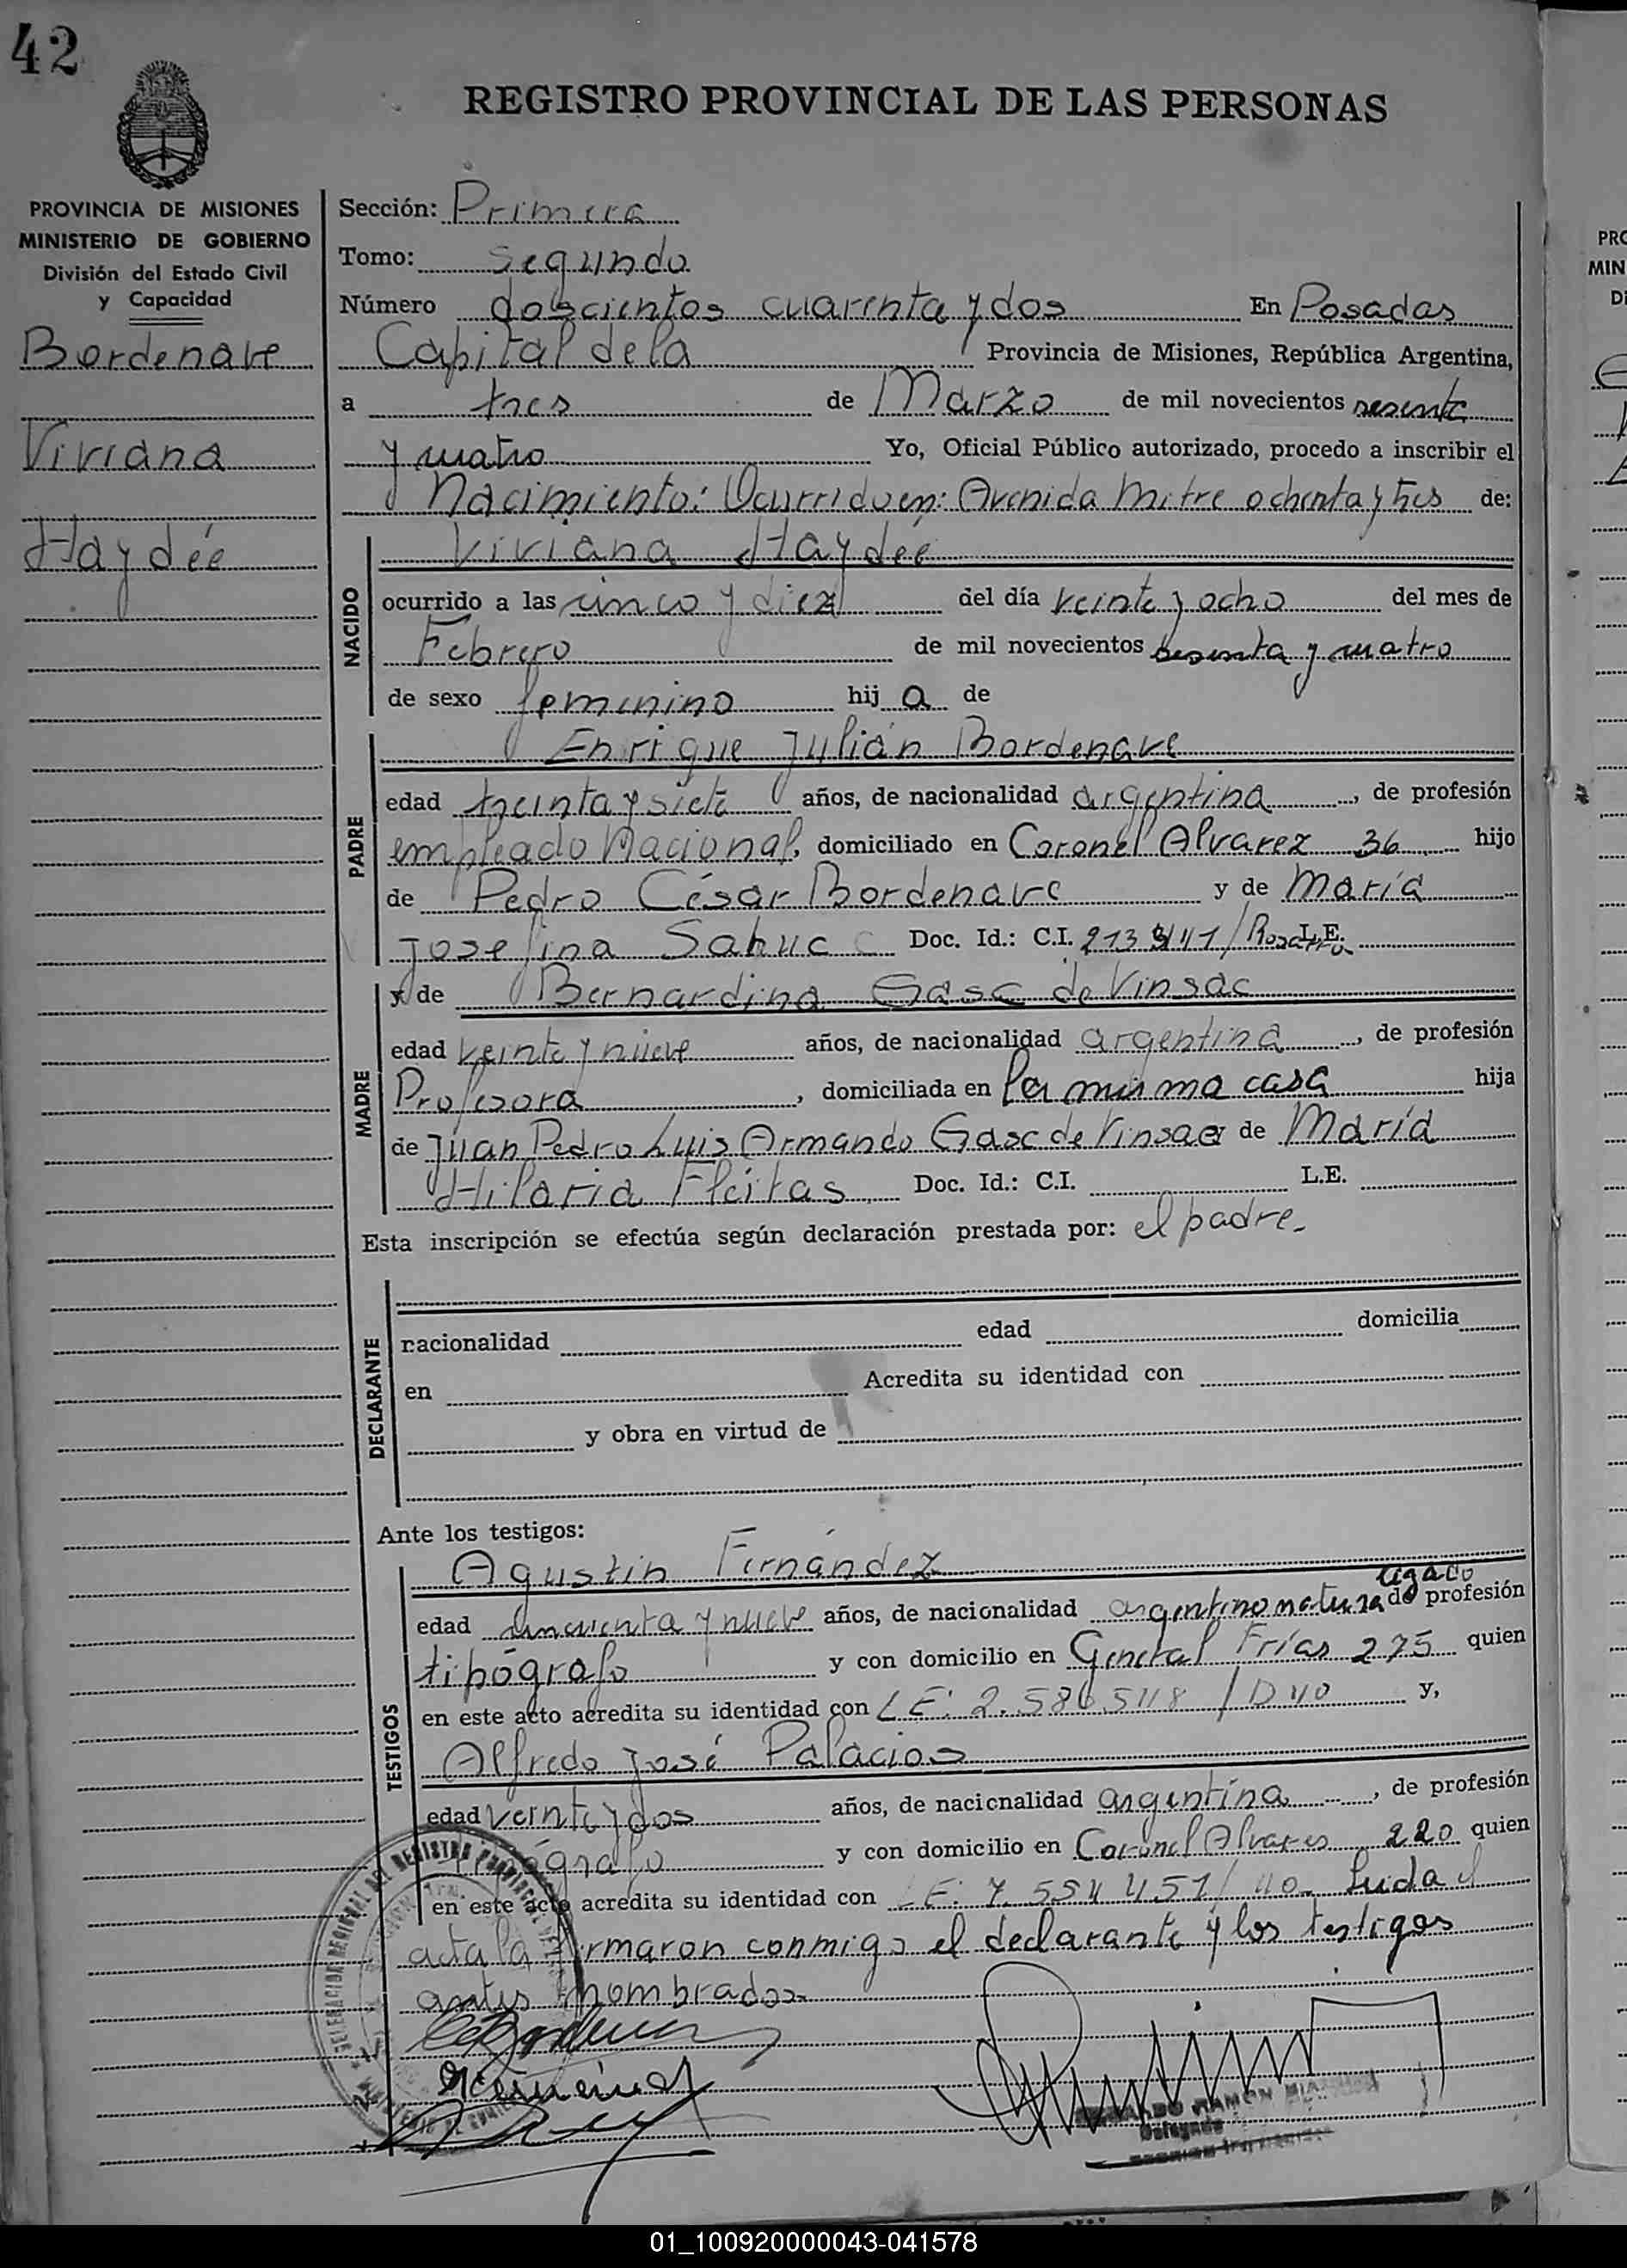 42
REGISTRO PROVINCIAL DE LAS PERSONAS
PROVINCIA DE MISIONES
MINISTERIO DE GOBIERNO
División del Estado Civil
y Capacidad
Bordenave
Viviana
Haydée
Sección: Primera
Tomo: Segundo
Número doscientos cuarenta y dos En Posadas
Capital de la Provincia de Misiones, República Argentina,
a tres de Marzo de mil novecientos sesenta
y cuatro Yo, Oficial Público autorizado, procedo a inscribir el
Nacimiento: Ocurrido en: Avenida Mitre ochenta y tres de:
NACIDO
Viviana Haydée
ocurrido a las cinco y diez del día veinte y ocho del mes de
Febrero de mil novecientos sesenta y cuatro
de sexo femenino hij a de
PADRE
Enrique Julián Bordenave
edad treinta y siete años, de nacionalidad argentina, de profesión
empleado Nacional, domiciliado en Coronel Alvarez 36 hijo
de Pedro César Bordenave y de María
Josefina Sahuc Doc. Id.: C.I. L.E.
MADRE
y de Bernardina Gasc de Vinsac
edad veinte y nueve años, de nacionalidad argentina, de profesión
Profesora, domiciliada en la misma casa hija
de Juan Pedro Luis Armando Gasc de Vinsac y de María
Hilaria Fleitas Doc. Id.: C.I. L.E.
Esta inscripción se efectúa según declaración prestada por: el padre.
DECLARANTE
nacionalidad edad domicilia
en Acredita su identidad con
y obra en virtud de
Ante los testigos:
TESTIGOS
Agustín Fernández
edad cincuenta y nueve años, de nacionalidad argentino naturalizado de profesión
tipógrafo y con domicilio en General Frías 275 quien
en este acto acredita su identidad con LE: 2.586.548 / D 40 y,
Alfredo José Palacios
edad veinte y dos años, de nacionalidad argentina, de profesión
tipógrafo y con domicilio en Coronel Alvares 220 quien
en este acto acredita su identidad con LE: 7.554.451/ 40. Leida el
acta la firmaron conmigo el declarante y los testigos
antes nombrados
RAMON
Delegado
01_100920000043-041578